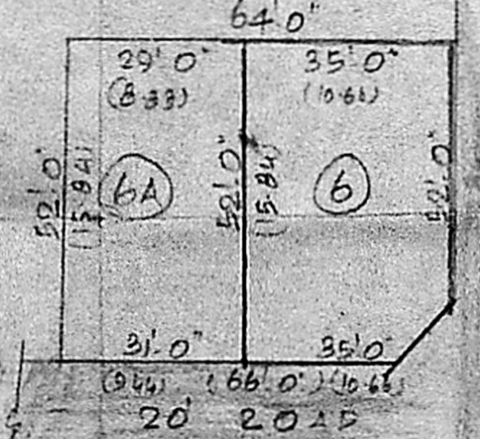 64'0"
29'0" 35'0"
(8.83) (10.66)
52'0" (15.84) 6A 52'0" (15.84) 6 52'0"
31'0" 35'0
(9.44) (66'0') (10.66)
20' ROAD